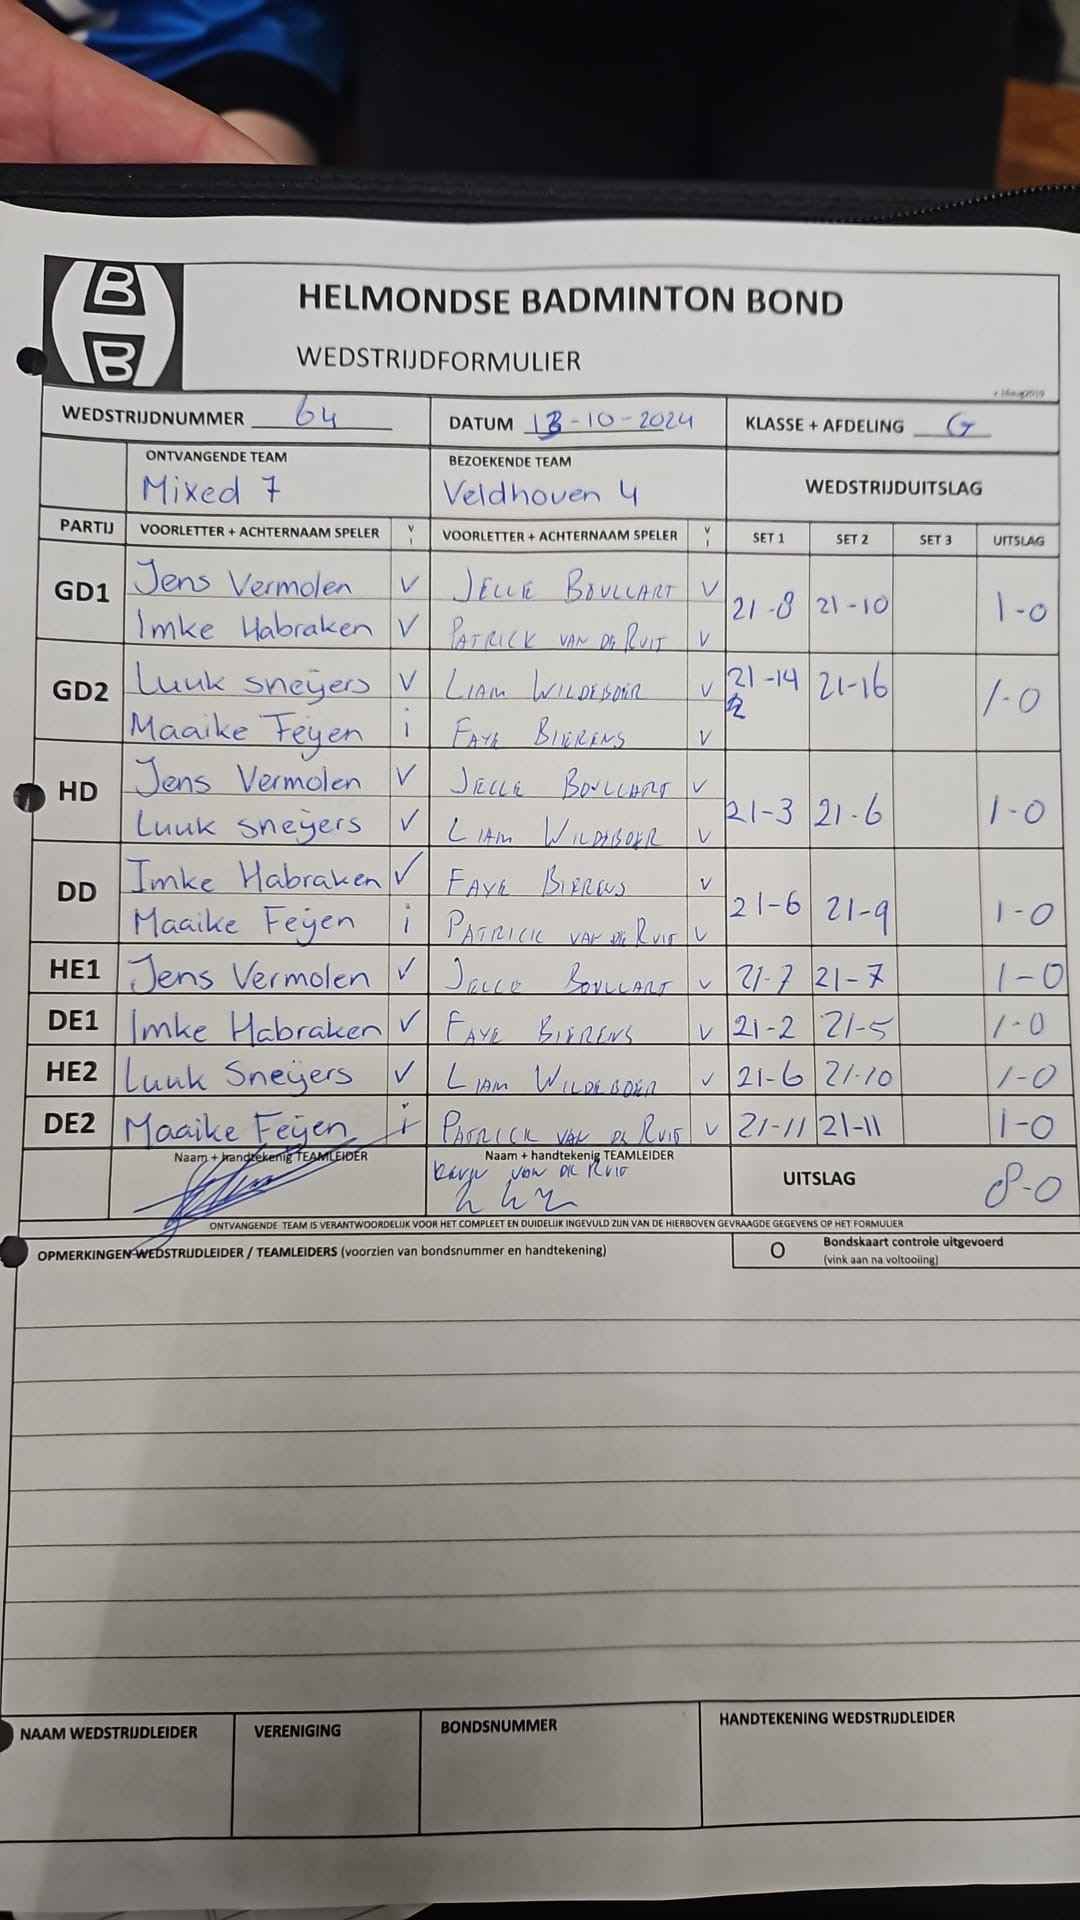 B
B
HELMONDSE BADMINTON BOND
WEDSTRIJDFORMULIER
WEDSTRIJDNUMMER 64 DATUM 13-10-2024 KLASSE + AFDELING G
ONTVANGENDE TEAM BEZOEKENDE TEAM WEDSTRIJDUITSLAG
Mixed 7 Veldhoven 4
PARTIJ VOORLETTER + ACHTERNAAM SPELER V I VOORLETTER + ACHTERNAAM SPELER V I SET 1 SET 2 SET 3 UITSLAG
GD1 Jens Vermolen V JELLE BOULLART V 21-8 21-10 1-0
Imke Habraken V PATRICK VAN DE RUIT V
GD2 Luuk Sneijers V LIAM WILDEBOER V 21-14 21-16 1-0
Maaike Feijen i FAYE BIERENS V
HD Jens Vermolen V JELLE BOULLART V 21-3 21-6 1-0
Luuk Sneijers V LIAM WILDEBOER V
DD Imke Habraken V FAYE BIERENS V 21-6 21-9 1-0
Maaike Feijen i PATRICK VAN DE RUIT V
HE1 Jens Vermolen V JELLE BOULLART V 21-7 21-7 1-0
DE1 Imke Habraken V FAYE BIERENS V 21-2 21-5 1-0
HE2 Luuk Sneijers V LIAM WILDEBOER V 21-6 21-10 1-0
DE2 Maaike Feijen i PATRICK VAN DE RUIT V 21-11 21-11 1-0
Naam + handtekenig TEAMLEIDER Naam + handtekenig TEAMLEIDER UITSLAG 8-0
VAN DE RUIT
ONTVANGENDE TEAM IS VERANTWOORDELIJK VOOR HET COMPLEET EN DUIDELIJK INGEVULD ZIJN VAN DE HIERBOVEN GEVRAAGDE GEGEVENS OP HET FORMULIER
OPMERKINGEN WEDSTRIJDLEIDER / TEAMLEIDERS (voorzien van bondsnummer en handtekening) O Bondskaart controle uitgevoerd
(vink aan na voltooiing)
NAAM WEDSTRIJDLEIDER VERENIGING BONDSNUMMER HANDTEKENING WEDSTRIJDLEIDER